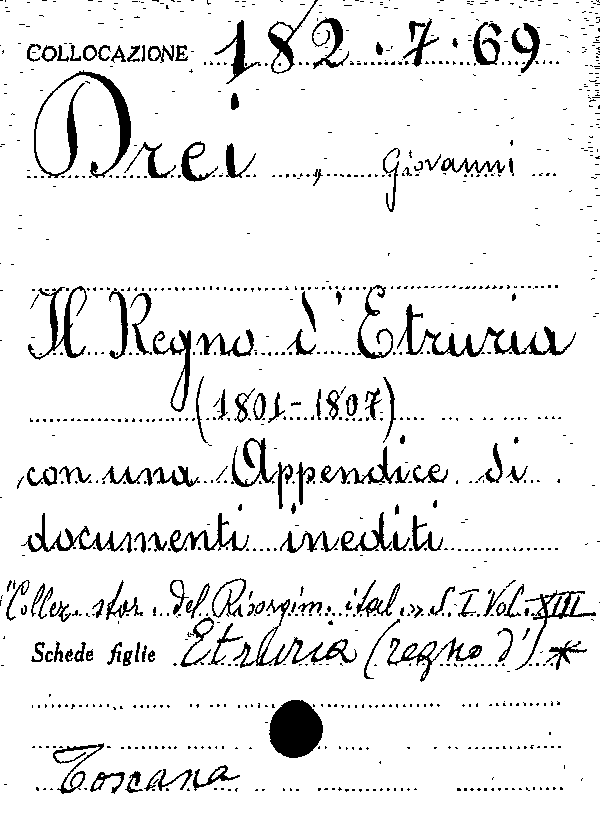 COLLOCAZIONE 182.7.69
Drei, Giovanni
Il Regno d'Etruria
(1801-1807)
con una Appendice di
documenti inediti
"Collez. stor. del Risorgim. ital.» S. I Vol. XIII
Schede figlie Etruria (regno d') *
Toscana